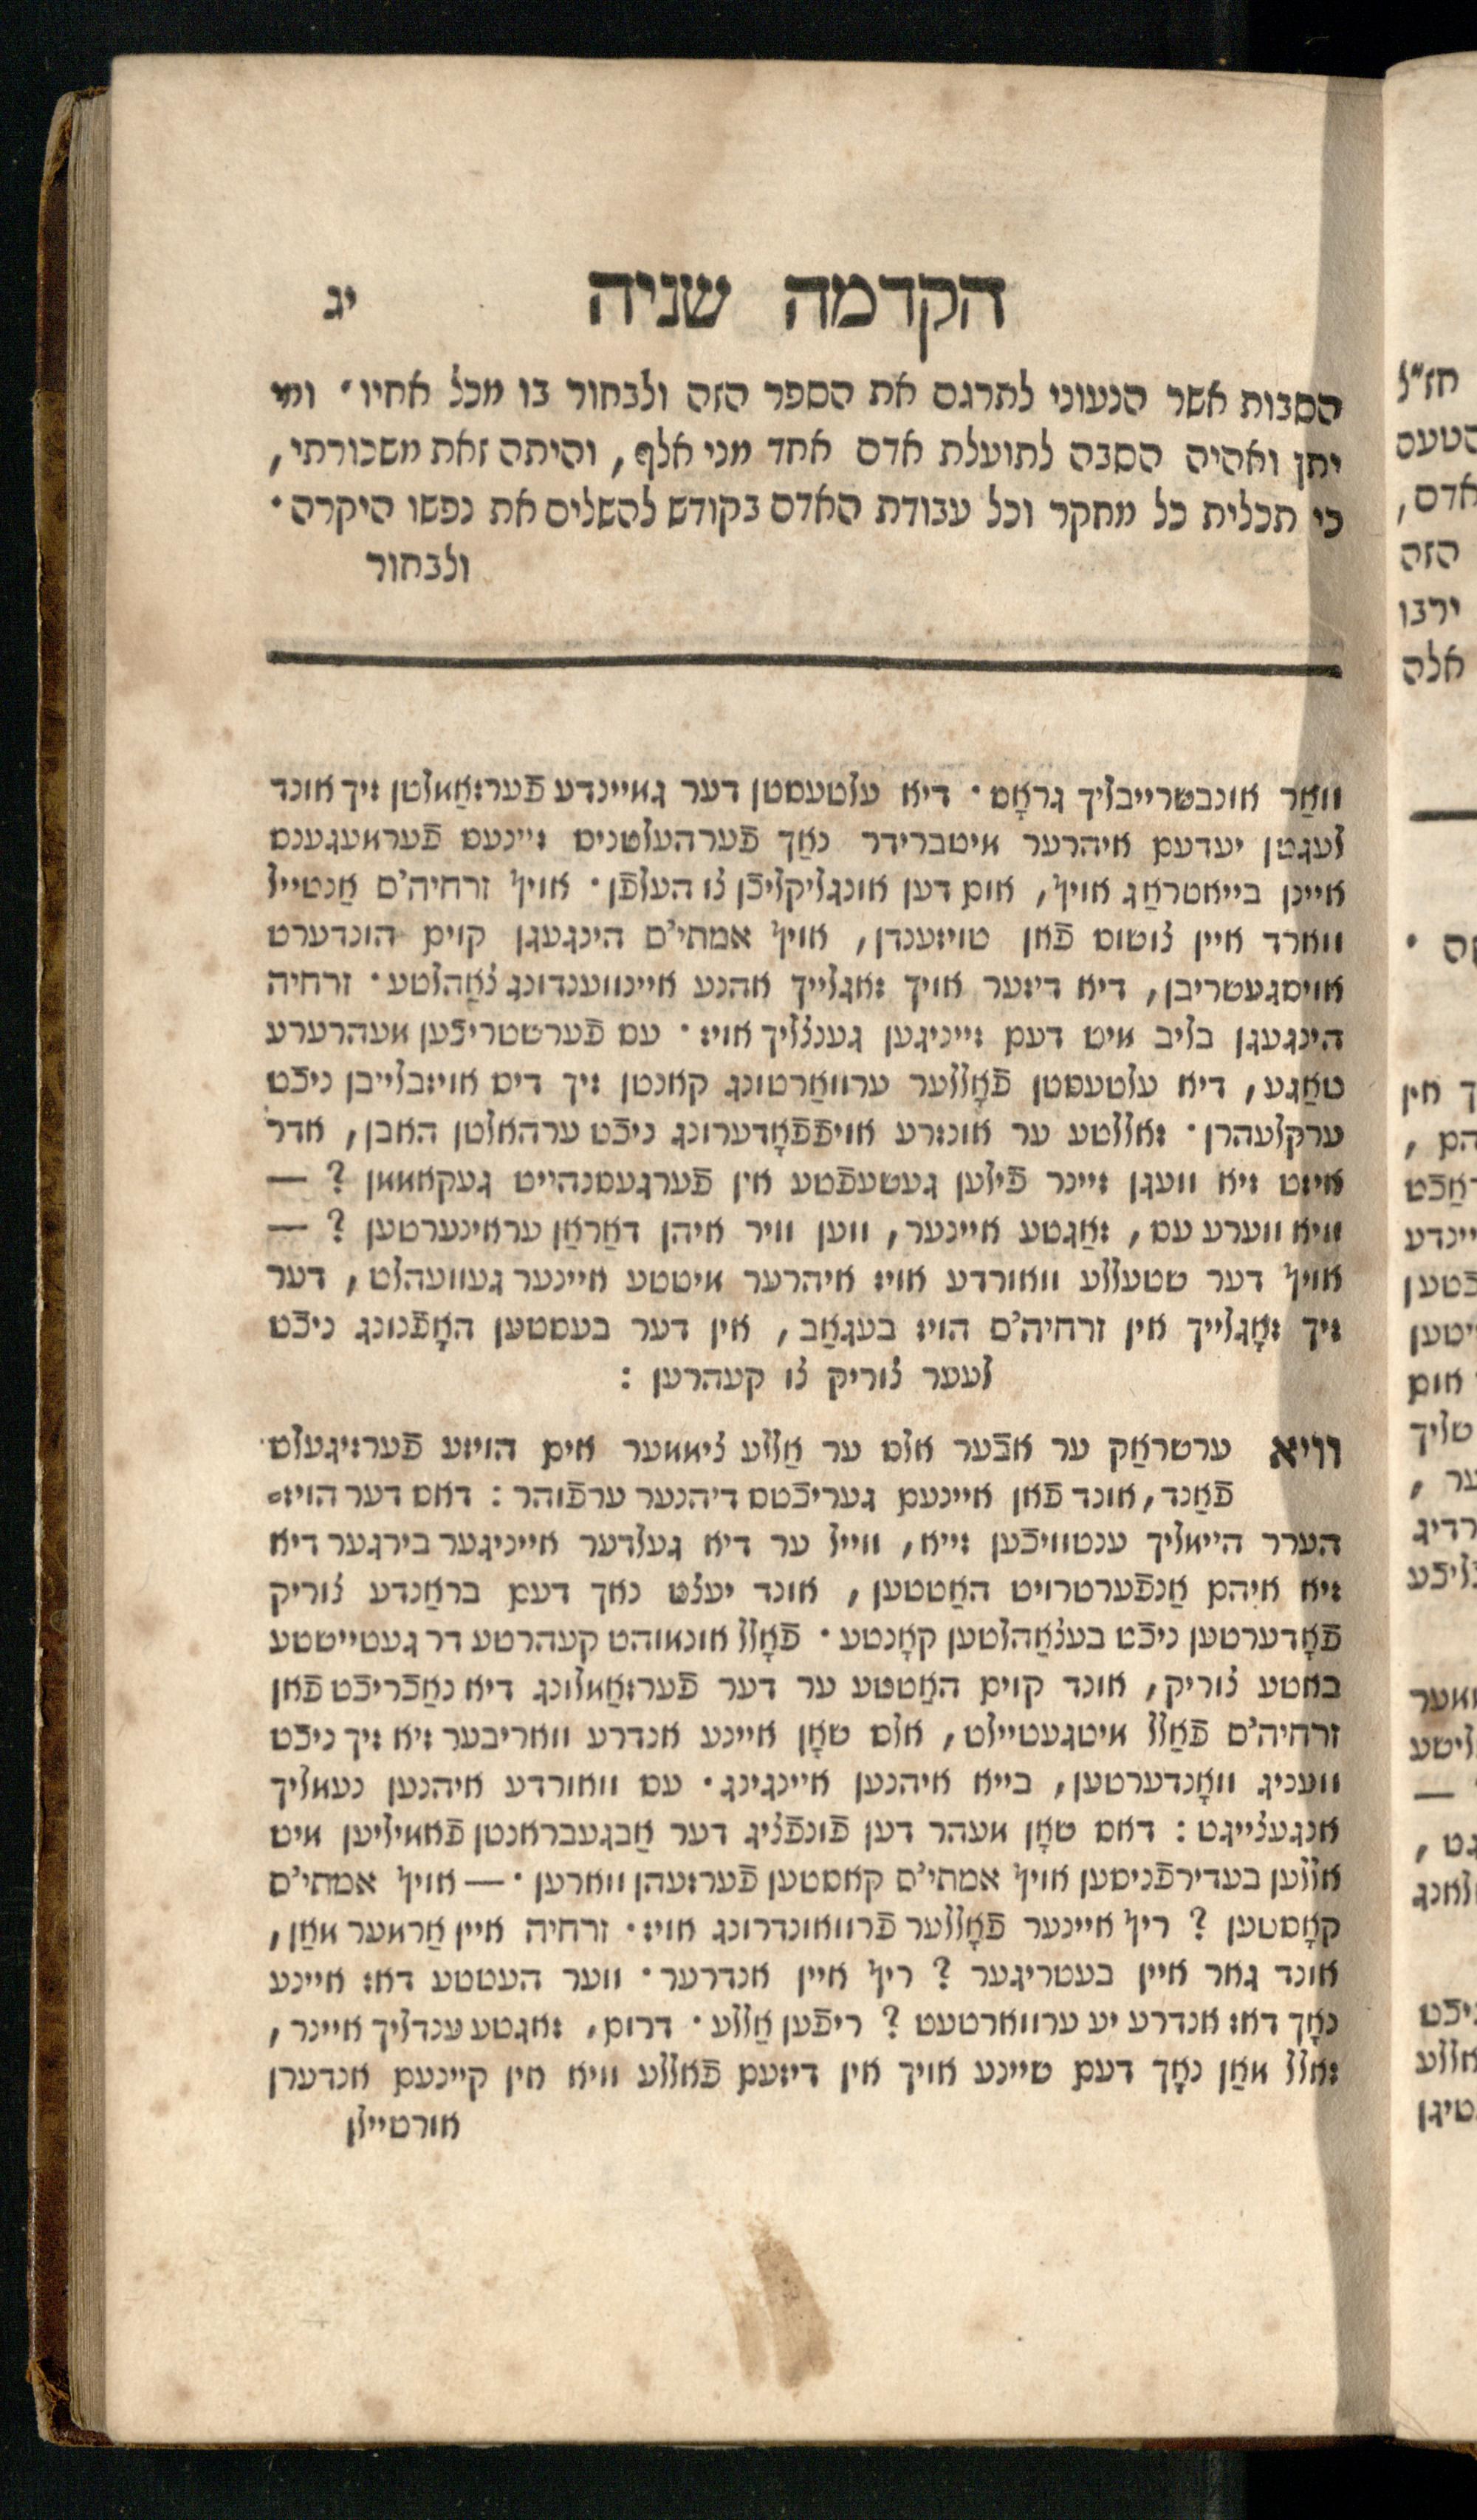 הקדמה שניה יג
הסבות אשר הנעוני לתרגם את הספר הזה ולבחור בו מכל אחיו · ומי
יתן ואהיה הסבה לתועלת אדם אחד מני אלף, והיתה זאת משכורתי,
כי תכלית כל מחקר וכל עבודת האדם בקודש להשלים את נפשו היקרה ·
ולבחור
וואַר אונבשרייבליך גראָס · דיא עלטעסטן דער גמיינדע פֿערזאַמלטן זיך אונד
לעגטן יעדעם איהרער מיטברידר נאַך פֿערהעלטניס זיינעס פֿערמעגענס
איינן בייאטראַג אויף, אום דען אונגליקליכֿן צו העלפֿן · אויף זרחיה'ס אַנטייל
ווארד איין צוטוס פֿאן טויזענדן, אויף אמתי'ס הינגעגן קוים הונדערט
אויסגעטריבן, דיא דיזער אויך זאגלייך אהנע איינווענדונג צאַהלטע · זרחיה
הינגעגן בליב מיט דעם זייניגען גענצליך אויז · עס פֿערשטריכֿען מעהרערע
טאַגע, דיא עלטעסטן פֿאָללער ערוואַרטונג קאנטן זיך דיס אויזבלייבן ניכֿט
ערקלעהרן · זאללטע ער אונזרע אויפֿפֿאָדערונג ניכֿט ערהאלטן האבן, אדר
איזט זיא וועגן זיינר פֿילען געשעפֿטע אין פֿערגעסנהייט געקאממן ? —
וויא ווערע עס, זאַגטע איינער, ווען וויר איהן דאַראַן עראינערטען ? —
אויף דער שטעללע וואורדע אויז איהרער מיטטע איינער געוועהלט, דער
זיך זאָגלייך אין זרחיה'ס הויז בעגאַב, אין דער בעסטען האָפֿנונג ניכֿט
לעער צוריק צו קעהרען :
וויא ערשראַק ער אבֿער אלס ער אַללע צימער אים הויזע פֿערזיגעלט
פֿאַנד, אונד פֿאן איינעם געריכֿטס דיהנער ערפֿוהר : דאס דער הויז-
הערר היימליך ענטוויכֿען זייא, ווייל ער דיא געלדער אייניגער בירגער דיא
זיא איהם אַנפֿערטרויט האַטטען, אונד יעצט נאך דעם בראַנדע צוריק
פֿאָדערטען ניכֿט בעצאַהלטען קאָנטע · פֿאָלל אונמוהט קעהרטע דר געטיישטע
באטע צוריק, אונד קוים האַטטע ער דער פֿערזאַמלונג דיא נאַכֿריכֿט פֿאן
זרחיה'ס פֿאַלל מיטגעטיילט, אלס שאָן איינע אנדרע וואריבער זיא זיך ניכֿט
וועניג וואָנדערטען, בייא איהנען איינגינג · עס וואורדע איהנען נעמליך
אנגעצייגט : דאס שאָן מעהר דען פֿונפֿציג דער אַבגעבראנטן פֿאמיליען מיט
אללען בעדירפֿניסען אויף אמתי'ס קאסטען פֿערזעהן ווארען · — אויף אמתי'ס
קאָסטען ? ריף איינער פֿאָללער פֿרוואונדרונג אויז · זרחיה איין אַרמער מאַן,
אונד גאר איין בעטריגער ? ריף איין אנדרער · ווער העטטע דאז איינע
נאָך דאז אנדרע יע ערווארטעט ? ריפֿען אַללע · דרום, זאגטע ענדליך איינר,
זאלל מאַן נאָך דעם שיינע אויך אין דיזעם פֿאללע וויא אין קיינעם אנדערן
אורטיילן